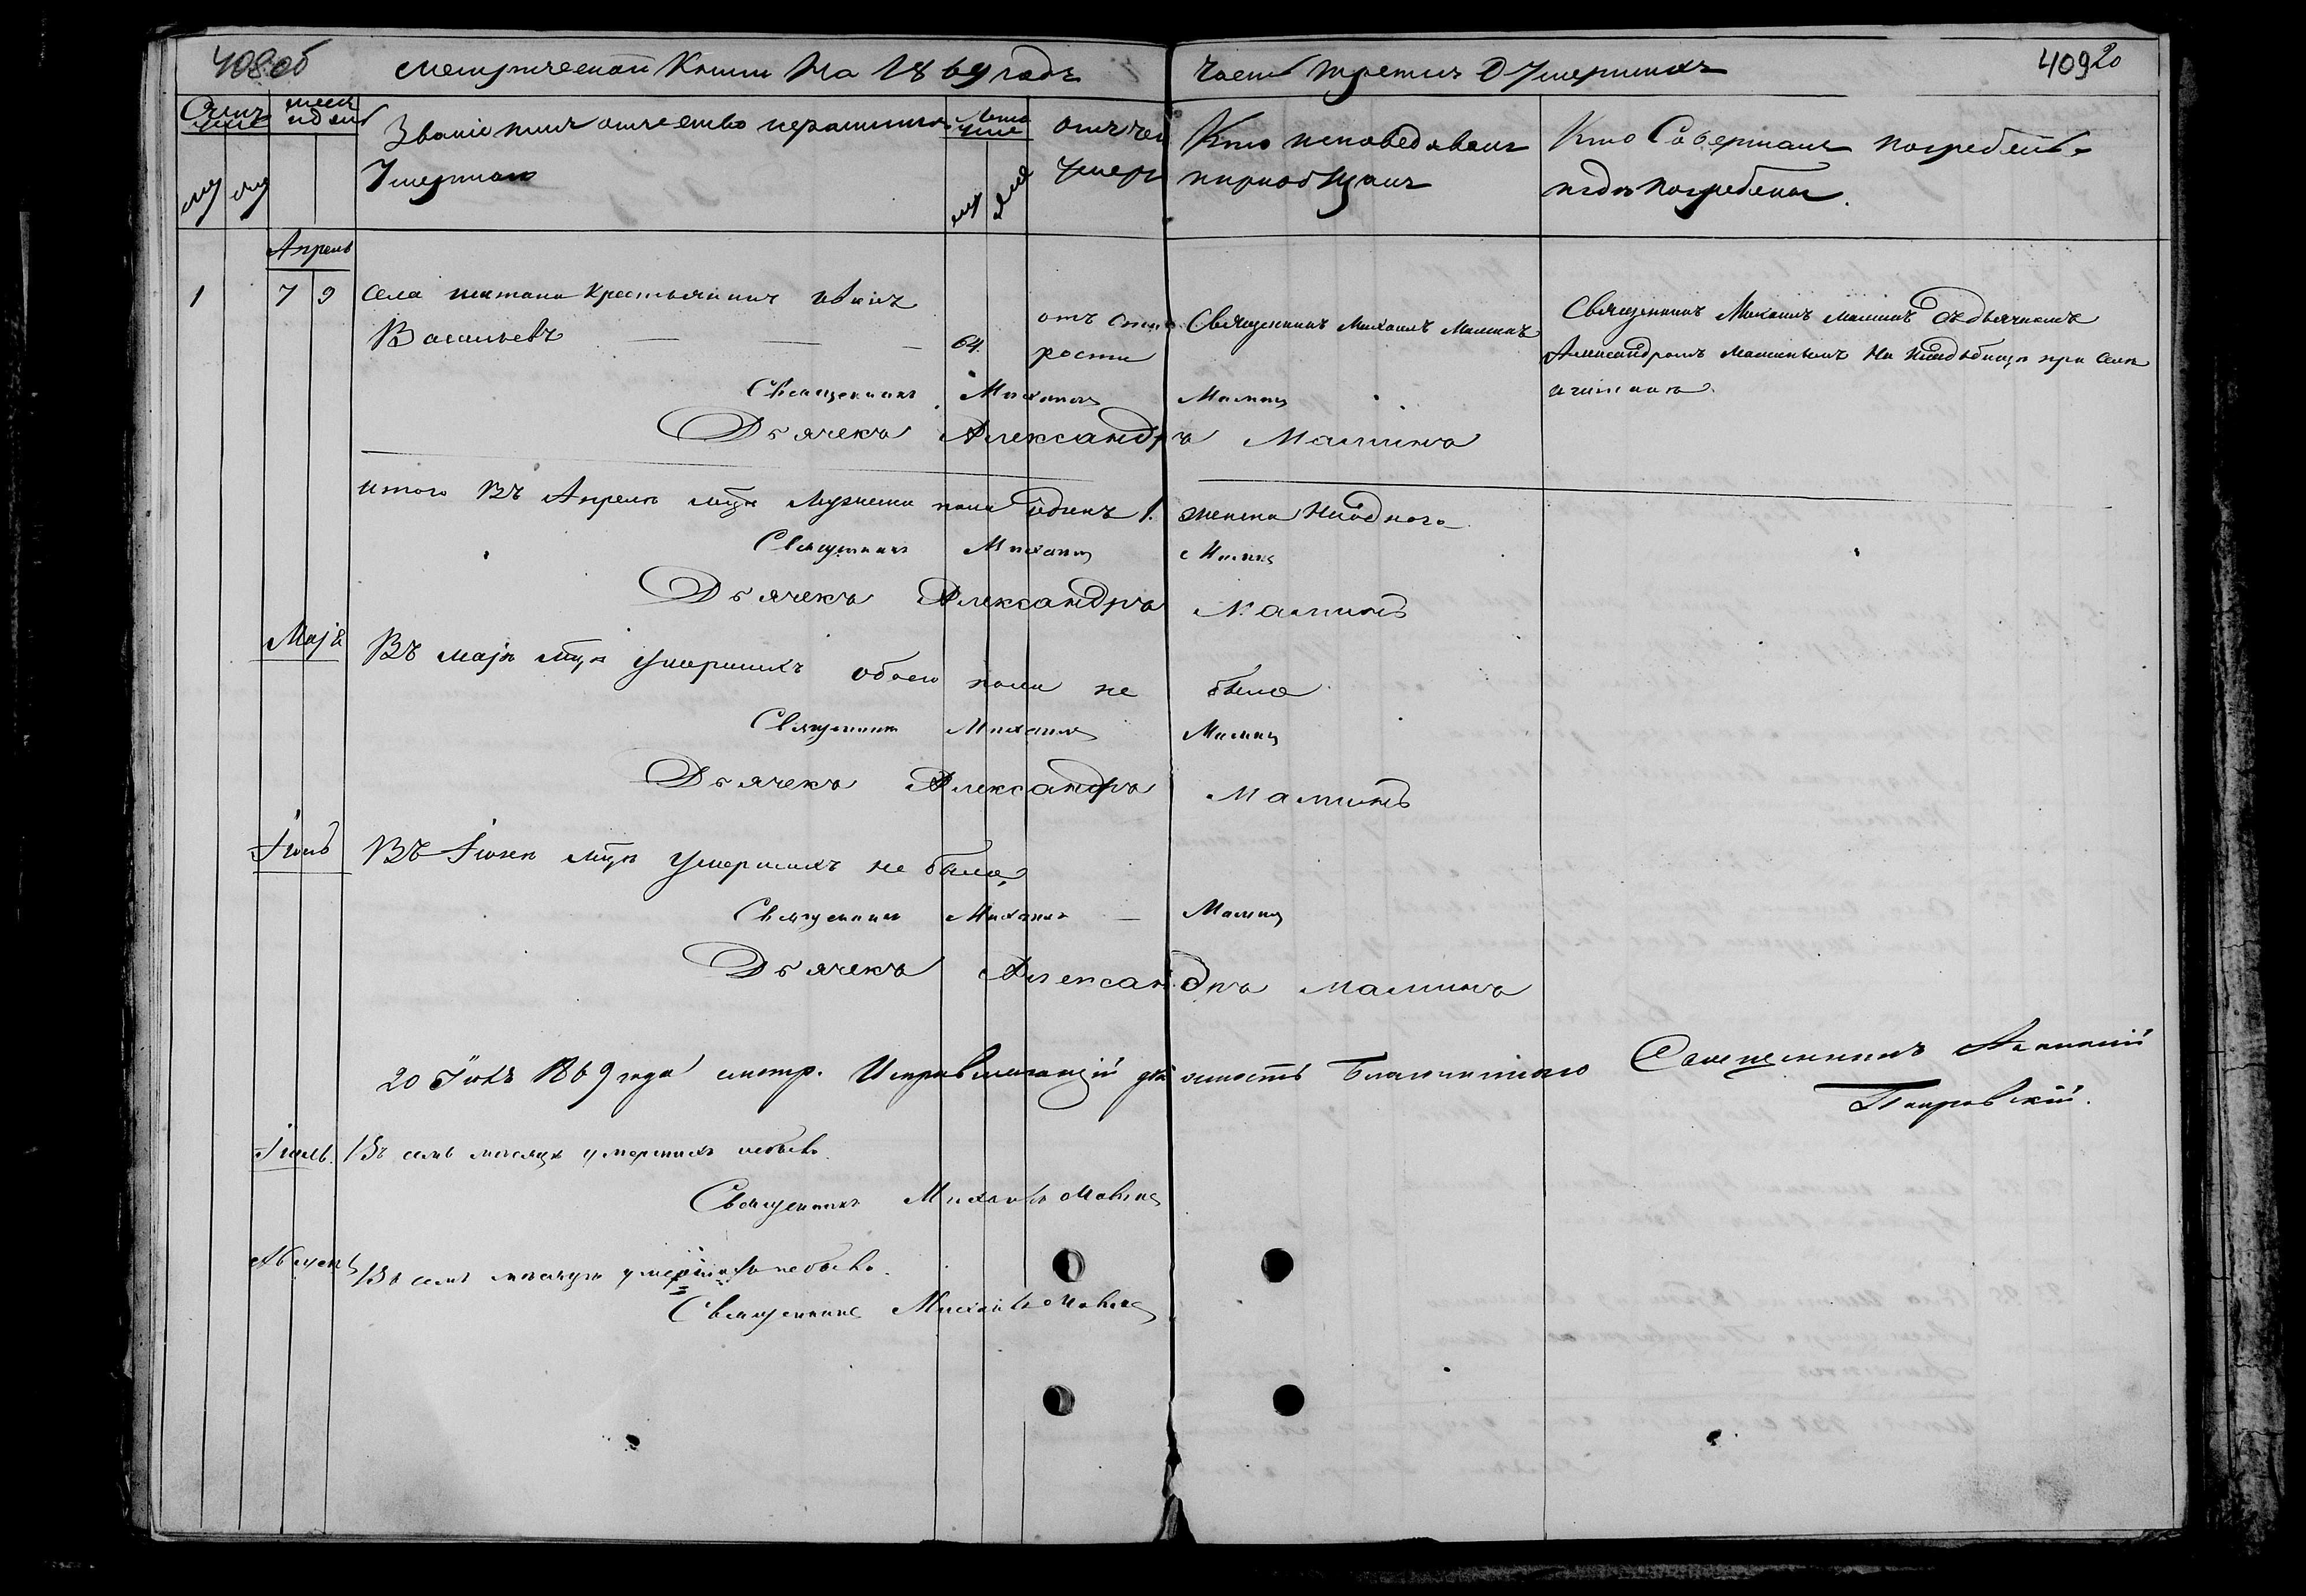 408об Метрической Книги На 1869 годъ Часть третия О Умершихъ 409 20
Званіе имя отчество
Умершаго
Лета
отъ чего
умеръ
Кто исповедовалъ
и приобщалъ
Кто Совершалъ погребеніе
и где погребены.
муж
Апрель
1 7 9 Села Крестьянинъ
Васильевъ 64. отъ старости
Священникъ Михаилъ Малинъ
Священникъ Михаилъ Малинъ съ дьячкомъ
Александромъ Малинымъ На кладбище при селе
Священникъ Михаилъ Малинъ
Дьячекъ Александръ Малинъ
итого Въ Апреле мцѣ Мужеска пола одинъ 1. женска ни одного
Священникъ Михаилъ Малинъ
Дьячекъ Александръ Малинъ
Маја Въ маје мцѣ умершихъ обоего пола не было
Священникъ Михаилъ Малинъ
Дьячекъ Александръ Малинъ
Іюнь Въ Іюне мцѣ умершихъ не было
Священникъ Михаилъ Малинъ
Дьячекъ Александръ Малинъ
20 1869 года смотр. Исправляющій должность Благочиннаго Священникъ
Іюль. Въ семъ месяце умершихъ небыло.
Священникъ Михаилъ Малинъ
Августъ Въ семъ месяце умершихъ небыло.
Священникъ Михаилъ Малинъ